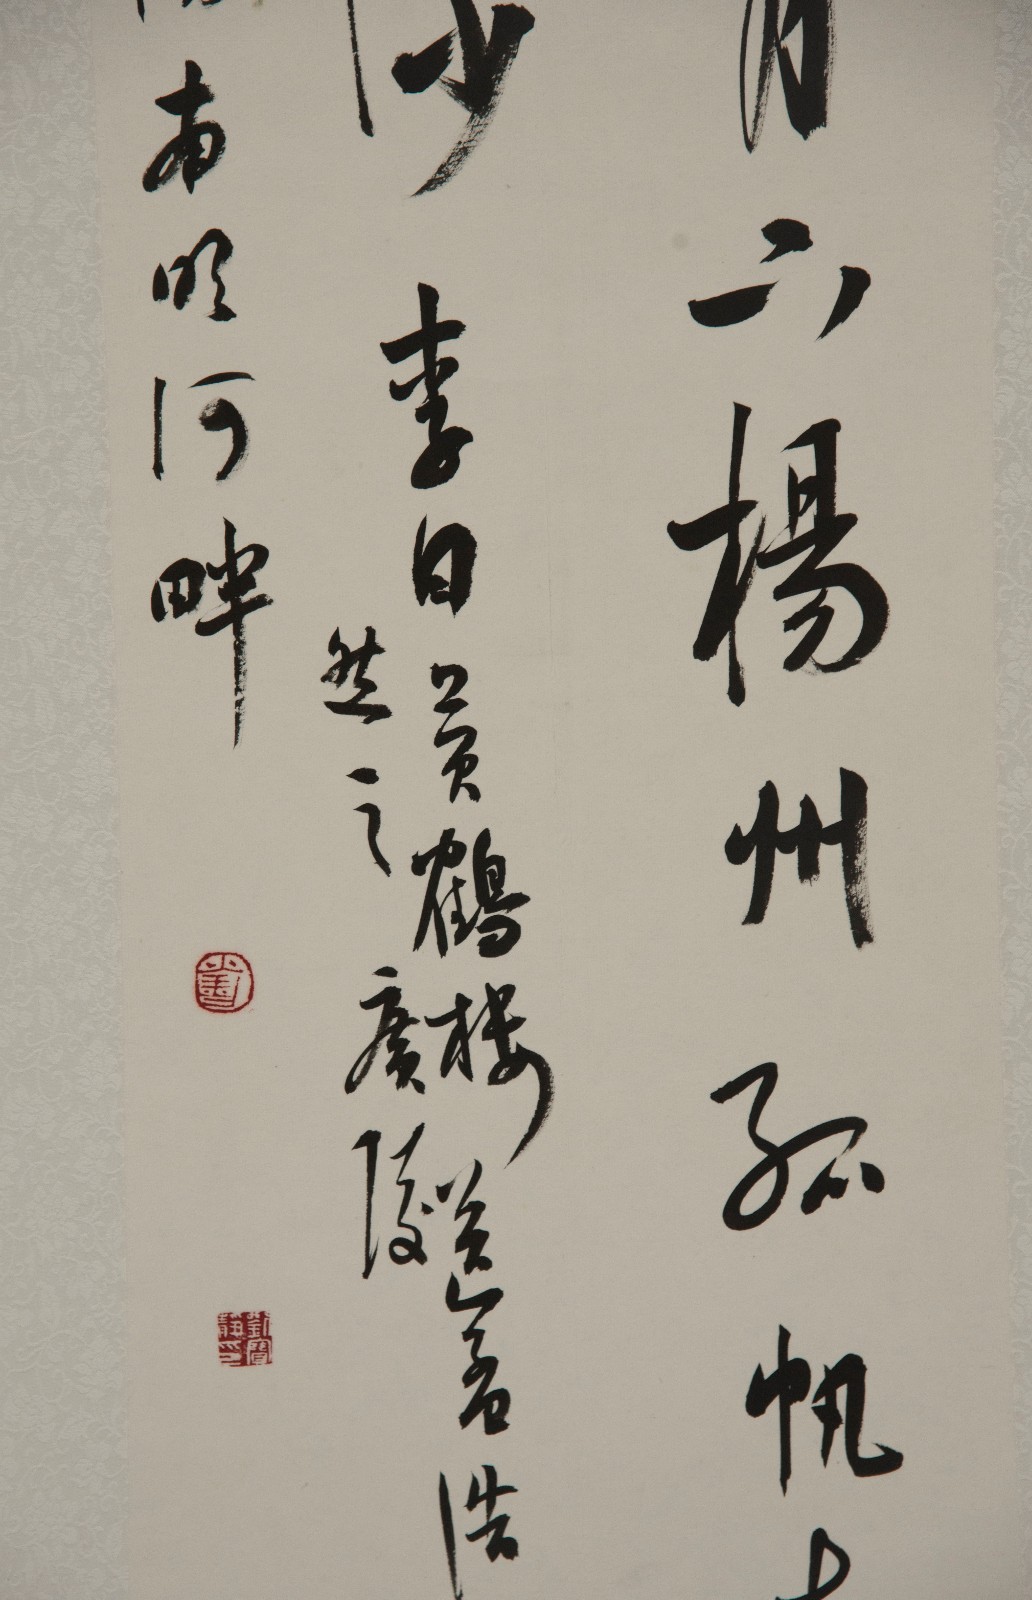 月下楊州孤帆
沙
李白黃鶴楼送孟浩
然之廣陵
南明河畔